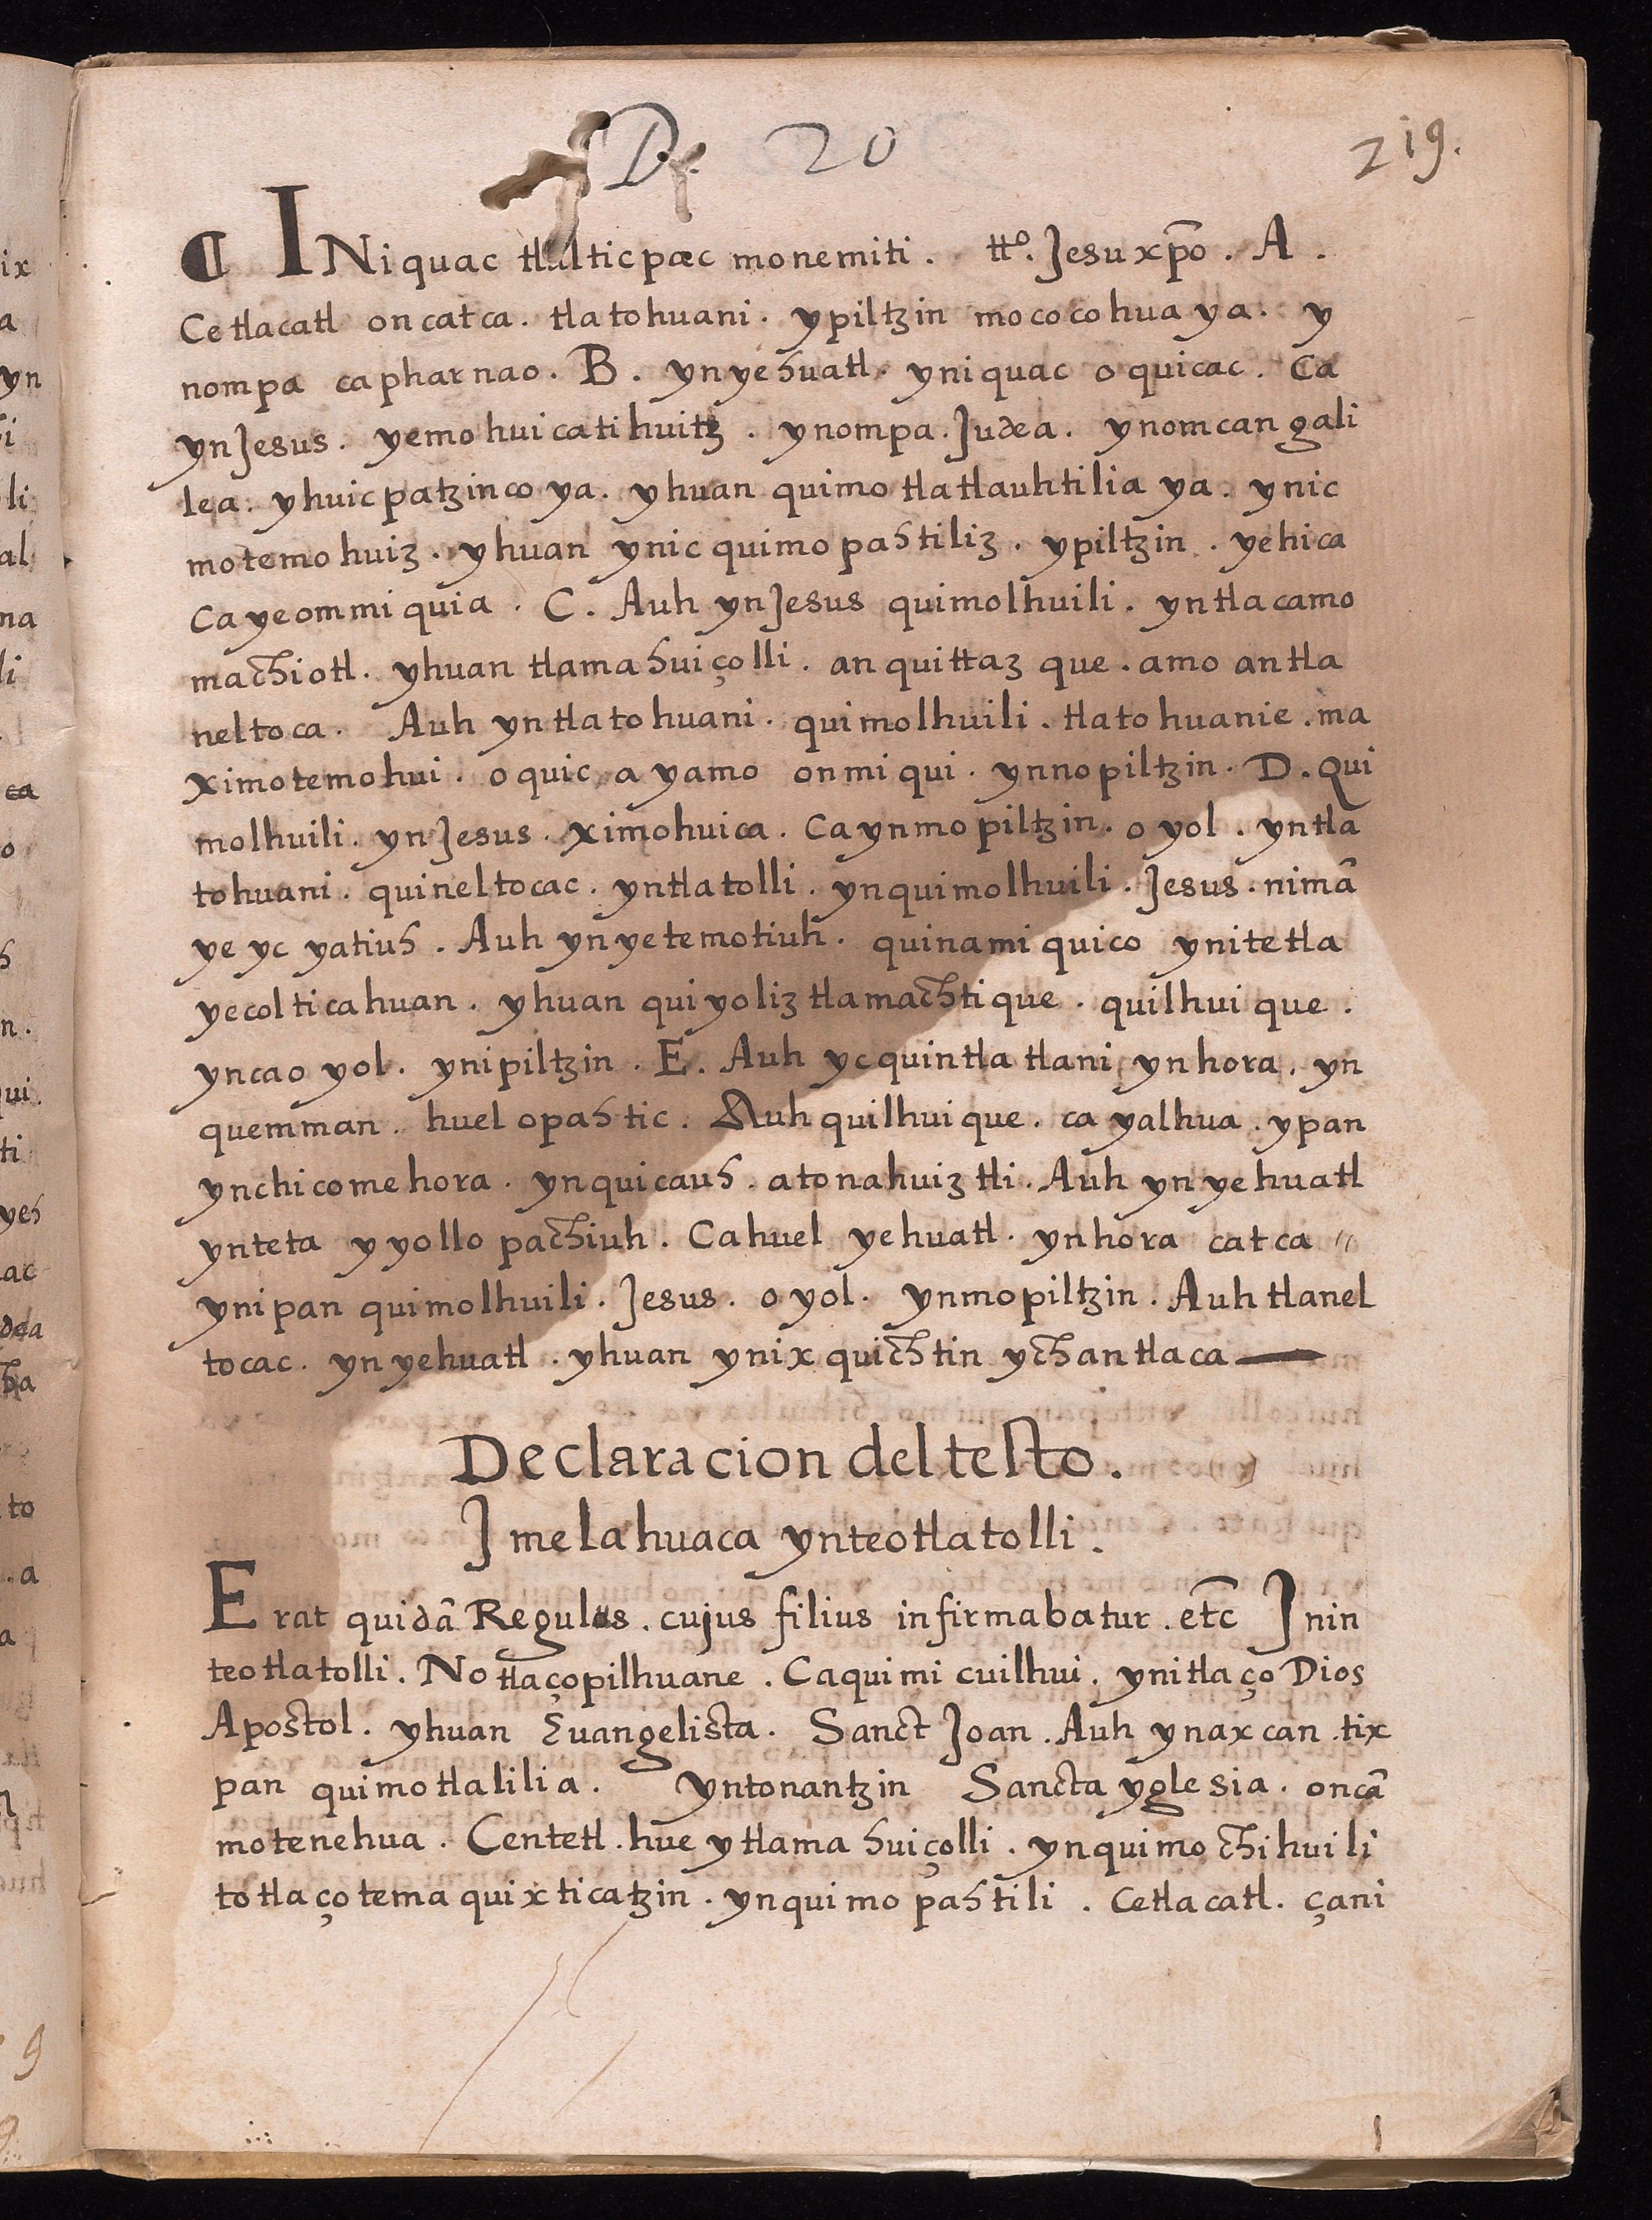 D. 20
219.
¶ INiquac tlalticpac monemiti. tto. Jesu xp̄o. A.
Cetlacatl oncatca. tlatohuani. ypiltzin mococohuaya. y
nompa capharnao. B. ynyehuatl. yniquac oquicac. Ca
ynJesus. yemohuicatihuitz. ynompa. Judea. ynomcan gali
lea. yhuicpatzincoya. yhuan quimotlatlauhtiliaya. ynic
motemohuiz. yhuan ynic quimopahtiliz. ypiltzin. yehica
Cayeommiquia. C. Auh ynJesus quimolhuili. yntlacamo
machiotl. yhuan tlamahuiçolli. anquittaz que. amo antla
neltoca. Auh yntlatohuani. quimolhuili. tlatohuanie. ma
ximotemohui. oquic ayamo onmiqui. ynnopiltzin. D. Qui
molhuili. ynJesus. ximohuica. Caynmopiltzin. oyol. yntla
tohuani. quineltocac. yntlatolli. ynquimolhuili. Jesus. nimā
ye yc yatiuh. Auh ynyetemotiuh. quinamiquico ynitetla
yecolticahuan. yhuan quiyoliz tlamachtique. quilhuique.
yncaoyol. ynipiltzin. E. Auh ycquintlatlani ynhora. yn
quemman. huel opahtic. Auh quilhuique. ca yalhua. ypan
ynchicomehora. ynquicauh. atonahuiztli. Auh ynyehuatl
ynteta yyollo pachiuh. Cahuel yehuatl. ynhora catca "
ynipan quimolhuili. Jesus. oyol. ynmopiltzin. Auh tlanel
tocac. ynyehuatl. yhuan ynixquichtin ychantlaca —
Declaracion deltesto.
Jmelahuaca ynteotlatolli.
Erat quidā Regulus. cujus filius infirmabatur. etc̄ Jnin
teotlatolli. Notlaçopilhuane. Caquimicuilhui. ynitlaço Dios
Apostol. yhuan Euangelista. Sanct Joan. Auh ynaxcan. tix
pan quimotlalilia. yntonantzin Sancta yglesia. oncā
motenehua. Centetl. hueytlamahuiçolli. ynquimochihuili
totlaçotemaquixticatzin. ynquimopahtili. Cetlacatl. çani